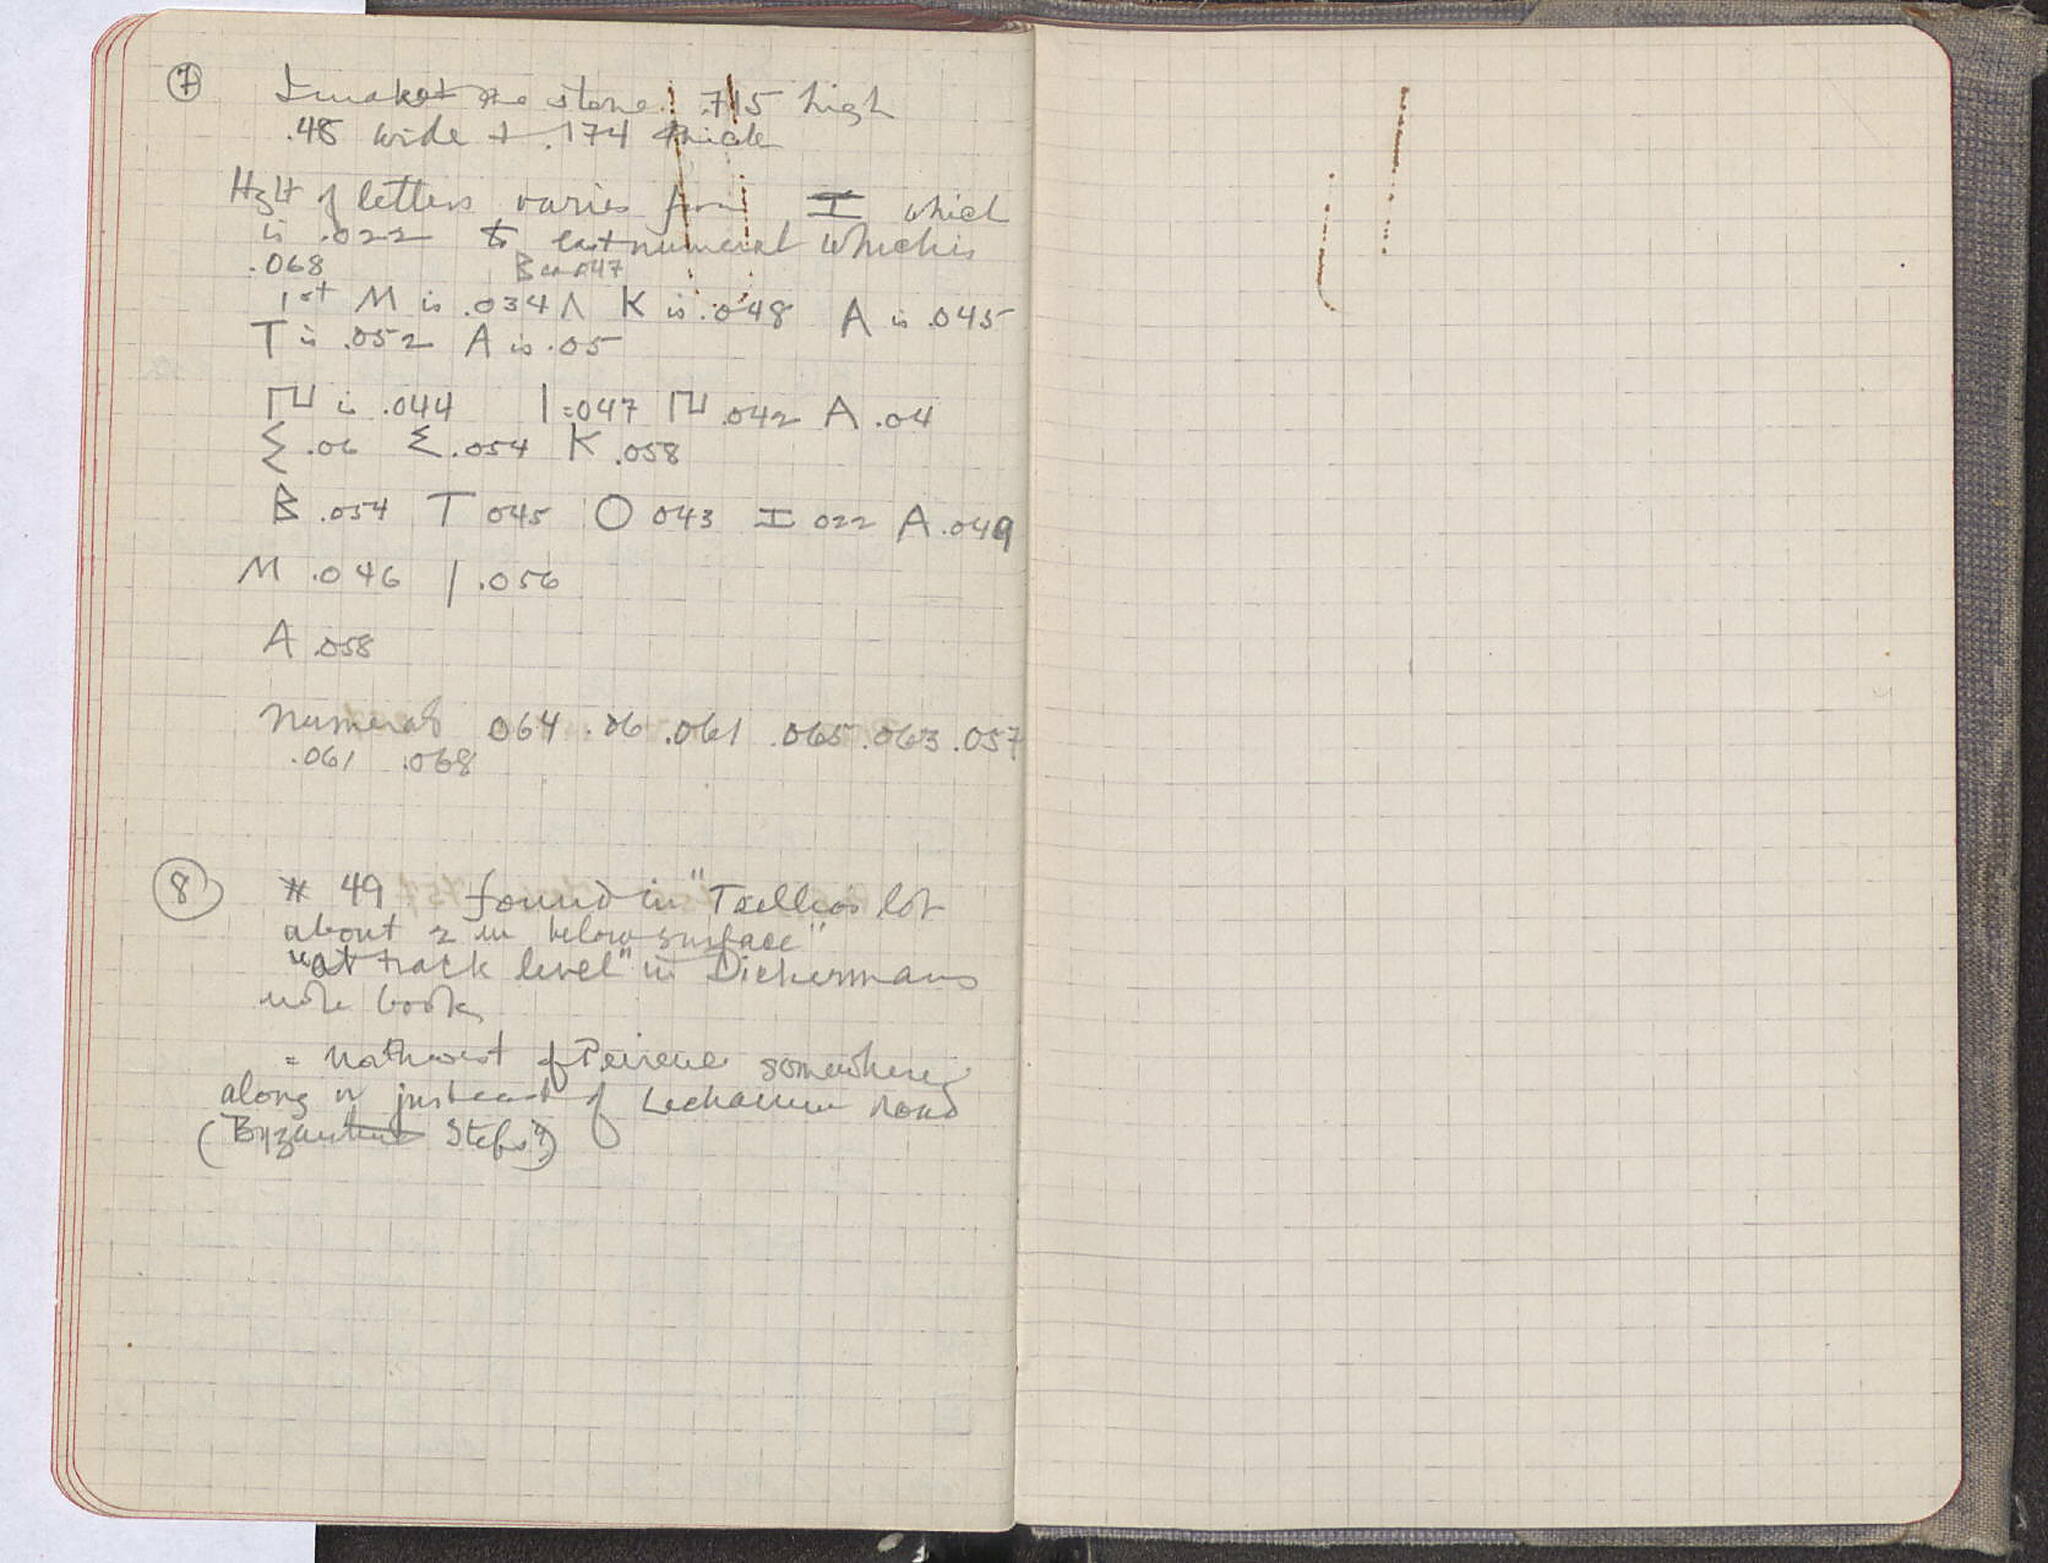 ⑦ I make the stone .715 high
.45 wide + .174 thick
Hght of letters varies from I which
is .022 to last numeral which is
.068
B = .047
1st M is .034 Λ K is .048 A is .045
T is .052 A is .05
is .044 | = 047 .042 A .04
Σ .06 Σ .054 K .058
B .054 T 045 O 043 I 022 A .049
M .046 | .056
A .058
Numerals 064 .06 .061 .065 .063 .057
.061 .068
⑧ # 49 found in "Tsellios lot
about 2 m below surface"
"at track level" in Dickermans
note book
= Northwest of Peirene somewhere
along or just east of Lechaeum Road
(Byzantine Steps?)